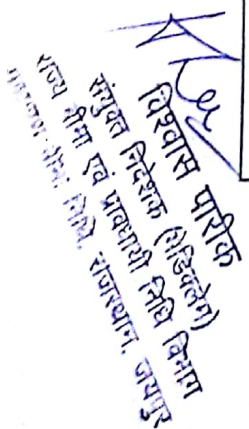 विश्वास पारीक
संयुक्त निदेशक (मेडिक्लेम)
राज्य बीमा एवं प्रावधायी निधि विभाग
निधि, राजस्थान, जयपुर